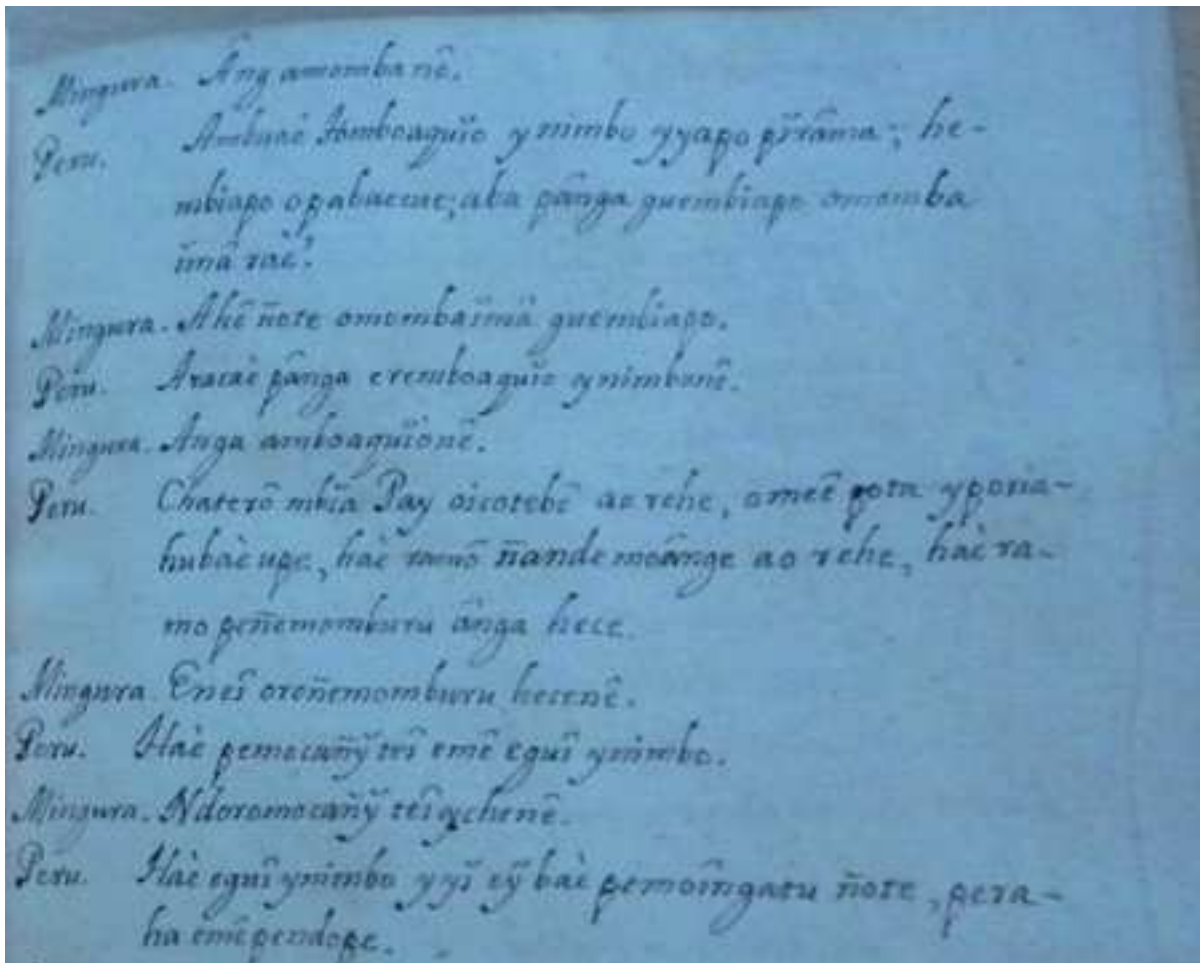 Mingura. Âng amombanê.
Peru. Ambuaè Amboaguĭio ynimbo yyapo pĭrâma; he-
mbiapo opabaerne; aba pânga guembiapo omomba
ĭmâ raè?
Mingura. Ahê ñote omombaĭmâ guembiapo.
Peru. Aracaè pânga eremboaguĭio ynimbonê.
Mingura. Anga amboaguĭionê.
Peru. Chaterô mbĭa Pay oicotebê ao rehe, omeê pota yporia-
hubaè upe, haè ramô ñande moânge ao rehe, haè ra-
mo peñemomburu ânga hece.
Mingura. Eneĭ oroñemomburu hecenê.
Peru. Haè pemocañỹ teĭ emê eguĭ ynimbo.
Mingura. Ndoromocañỹ teĭ ychenê.
Peru. Haè eguĭ ynimbo yyĭ eỹbaè pemoîngatu ñote, pera-
ha emê pendope.